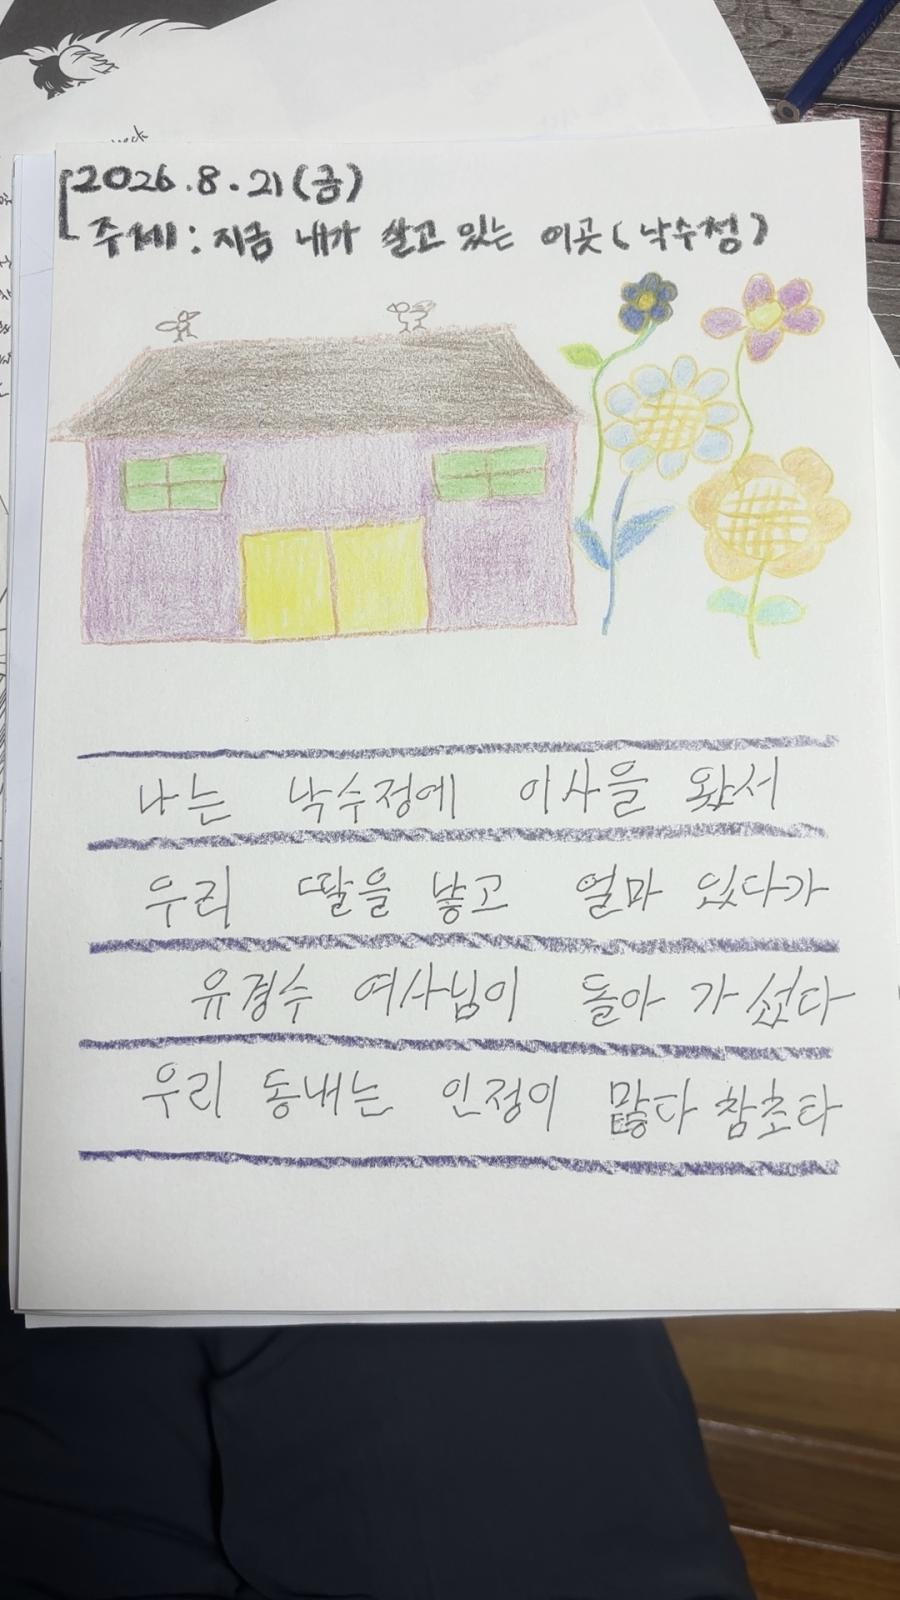 2026.8.21(금)
주제: 지금 내가 살고 있는 이곳(낙수정)
나는 낙수정에 이사을 왔서
우리 딸을 낳고 얼마 있다가
유경수 여사님이 돌아 가 섰다
우리 동내는 인정이 많다 참초타